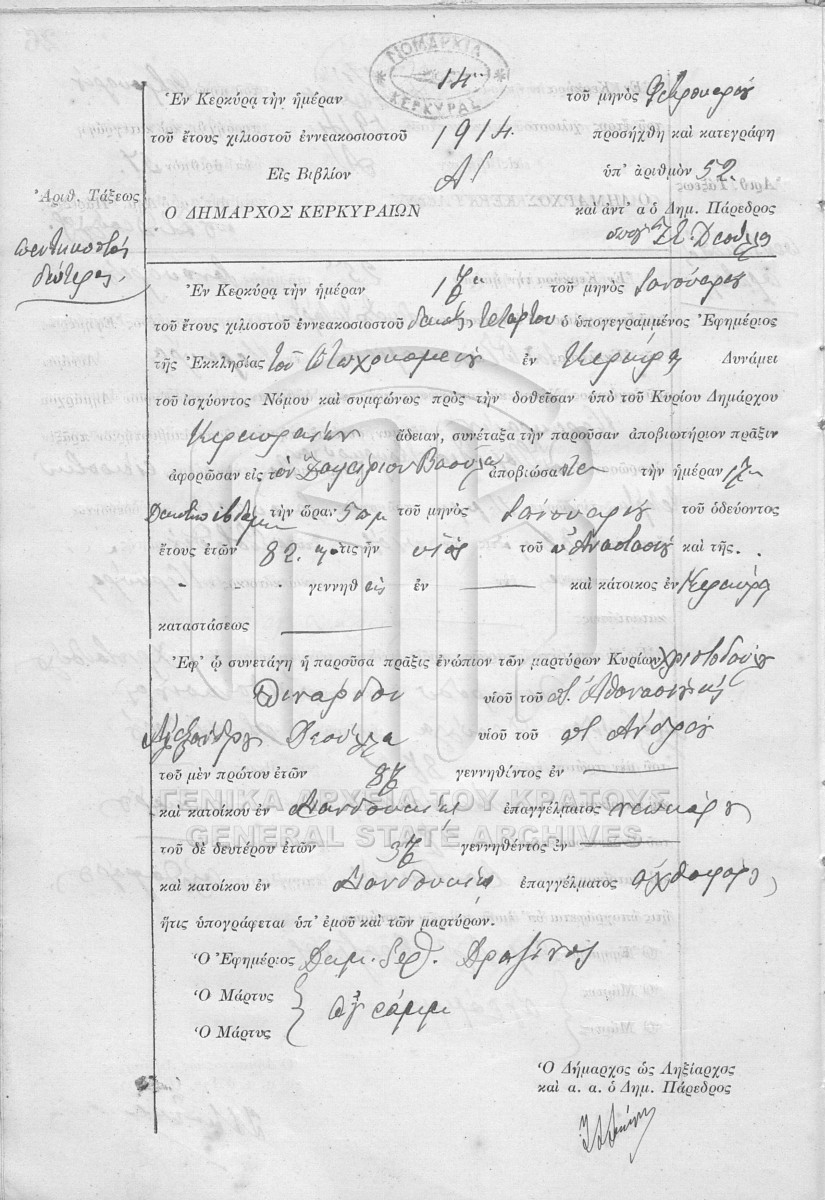 ΝΟΜΑΡΧΙΑ
ΚΕΡΚΥΡΑΣ
Ἐν Κερκύρᾳ τὴν ἡμέραν 14 τοῦ μηνὸς Φεβρουαρίου
τοῦ ἔτους χιλιοστοῦ ἐννεακοσιοστοῦ 1914 προσήχθη καὶ κατεγράφη
Εἰς Βιβλίον ὑπ' ἀριθμὸν 52.
Ἀριθ. Τάξεως
Ο ΔΗΜΑΡΧΟΣ ΚΕΡΚΥΡΑΙΩΝ καὶ ἀντ' α ὁ Δημ. Πάρεδρος
πεντηκοστὸς
δεύτερος
Ἐν Κερκύρᾳ τὴν ἡμέραν 17 τοῦ μηνὸς Ἰανουαρίου
τοῦ ἔτους χιλιοστοῦ ἐννεακοσιοστοῦ δεκάτου τετάρτου ὁ ὑπογεγραμμένος Ἐφημέριος
τῆς Ἐκκλησίας τοῦ Πτωχοκομείου ἐν Κερκύρᾳ Δυνάμει
τοῦ ἰσχύοντος Νόμου καὶ συμφώνως πρὸς τὴν δοθεῖσαν ὑπὸ τοῦ Κυρίου Δημάρχου
Κερκυραίων ἄδειαν, συνέταξα τὴν παροῦσαν ἀποβιωτήριον πρᾶξιν
ἀφορῶσαν εἰς τὸν Σπυρίδιον ἀποβιώσαντα τὴν ἡμέραν 17
τὴν ὥραν 5 π μ τοῦ μηνὸς Ἰανουαρίου τοῦ ὁδεύοντος
ἔτους ἐτῶν 82. ὅστις ἦν υἱὸς τοῦ π Ἀναστασίου καὶ τῆς .
γεννηθ εὶς ἐν — καὶ κάτοικος ἐν Κερκύρᾳ
καταστάσεως —
Ἐφ' ᾧ συνετάγη ἡ παροῦσα πρᾶξις ἐνώπιον τῶν μαρτύρων Κυρίων Χριστοδούλου
υἱοῦ τοῦ π. Ἀθανασίου καὶ
Ἀλεξάνδρου υἱοῦ τοῦ π. Ἀνδρέου
τοῦ μὲν πρώτου ἐτῶν γεννηθέντος ἐν —
καὶ κατοίκου ἐν Μανδουκίῳ ἐπαγγέλματος
τοῦ δὲ δευτέρου ἐτῶν 37 γεννηθέντος ἐν —
καὶ κατοίκου ἐν Μανδουκίῳ ἐπαγγέλματος ἀχθοφόρου
ἥτις ὑπογράφεται ὑπ' ἐμοῦ καὶ τῶν μαρτύρων.
Ὁ Ἐφημέριος
Ὁ Μάρτυς
ἀγράμμ
Ὁ Μάρτυς
Ὁ Δήμαρχος ὡς Ληξίαρχος
καὶ α. α. ὁ Δημ. Πάρεδρος
ΓΕΝΙΚΑ ΑΡΧΕΙΑ ΤΟΥ ΚΡΑΤΟΥΣ
GENERAL STATE ARCHIVES